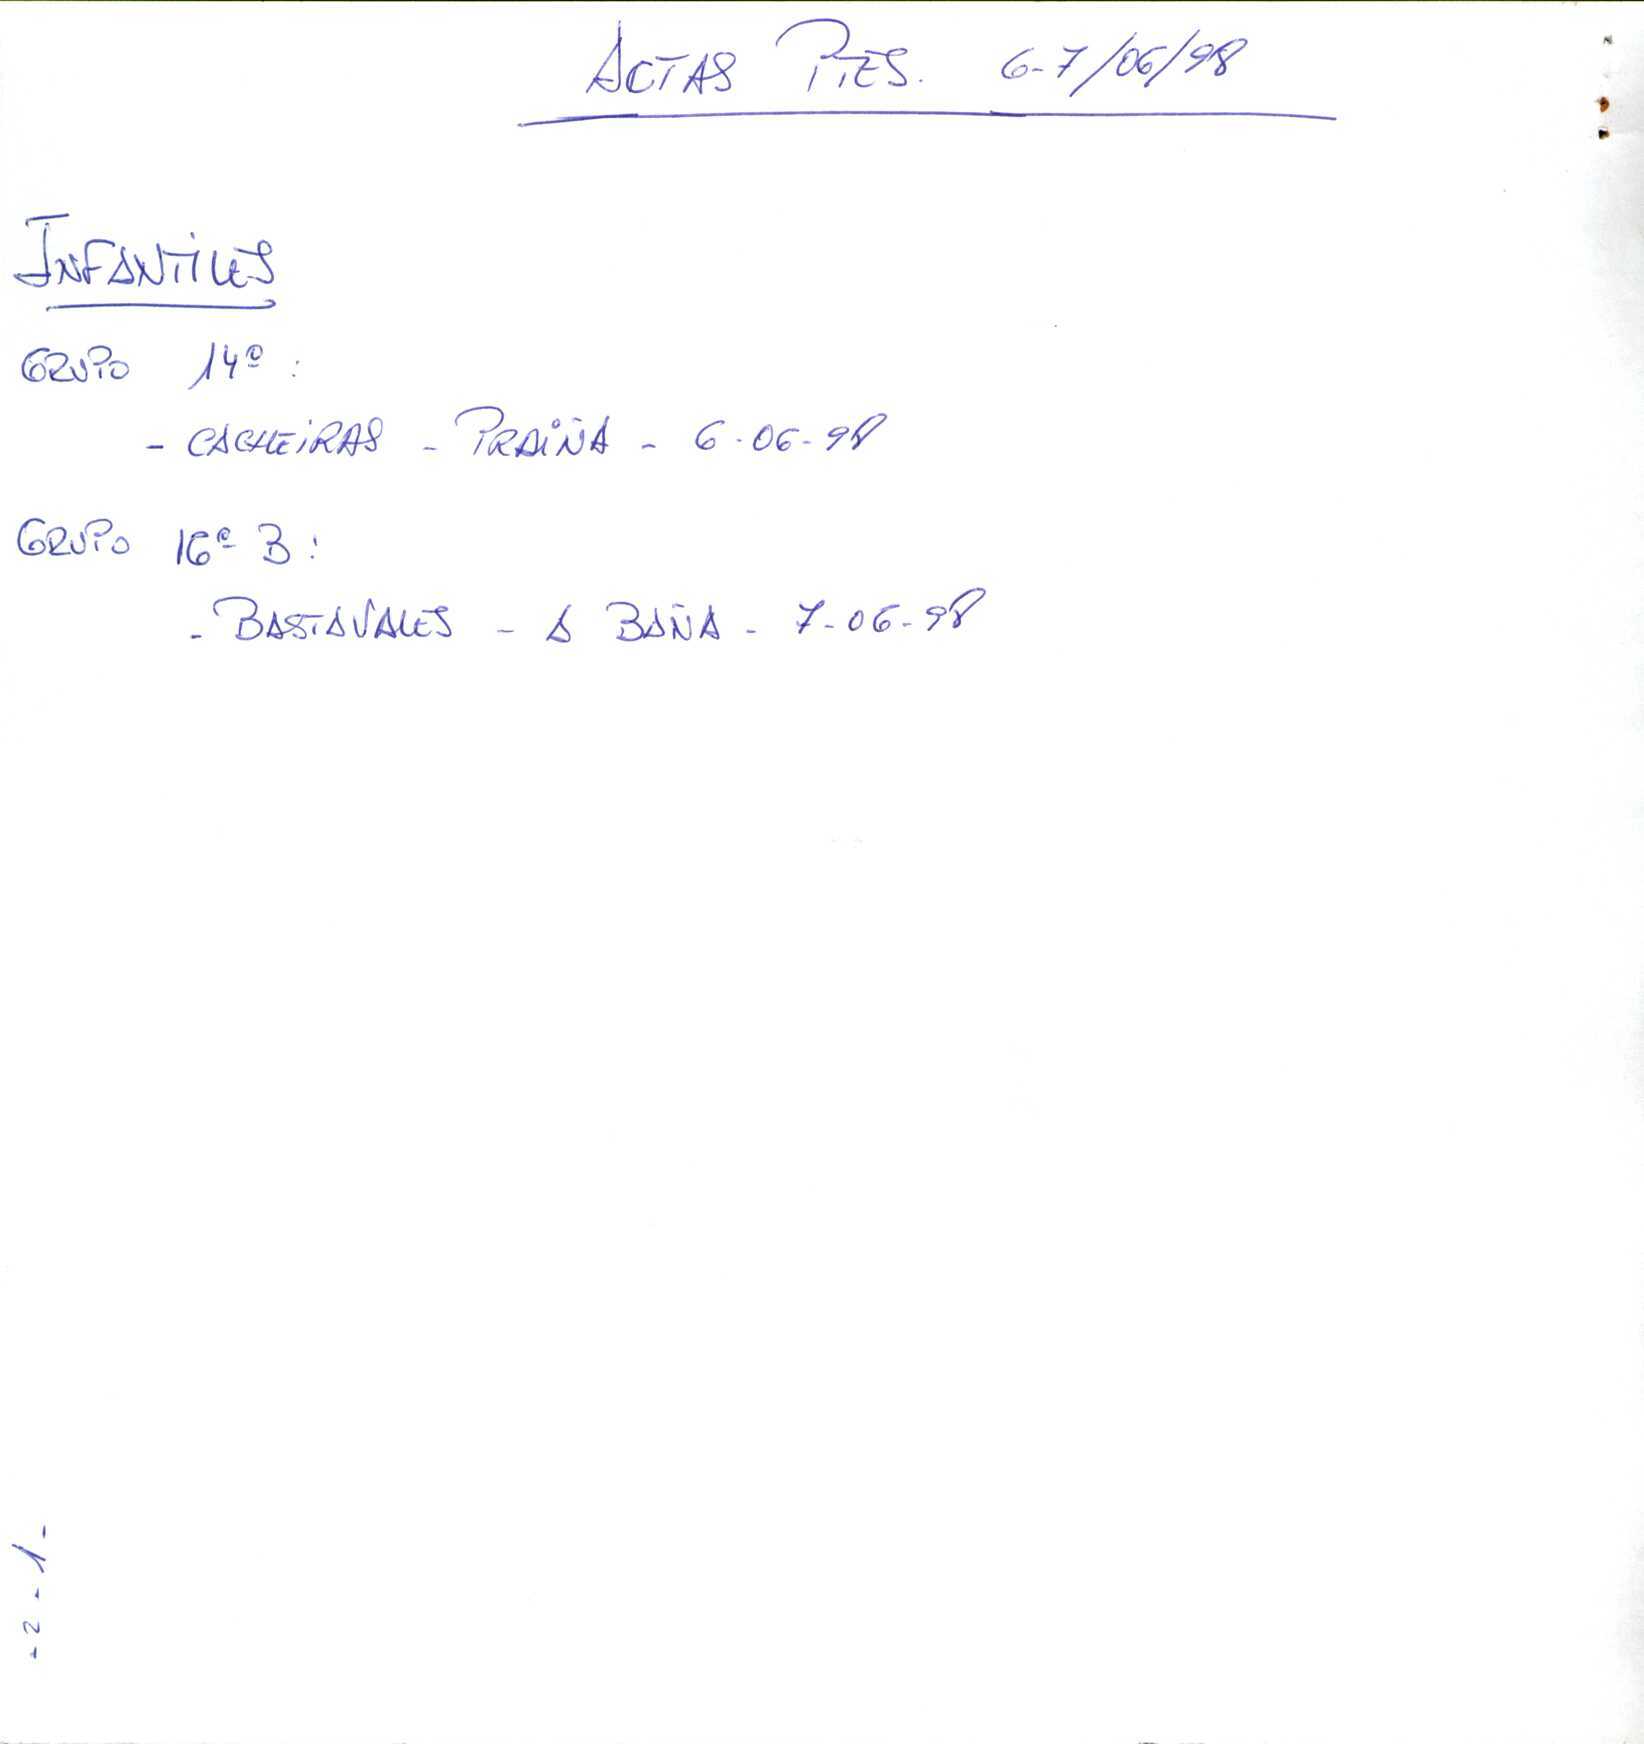 ACTAS PTES. 6-7/06/98
INFANTILES
GRUPO 14º :
- CACHEIRAS - PRAIÑA - 6-06-98
GRUPO 16º B :
- BASTAVALES - A BAÑA - 7-06-98
- 2 - 1 -